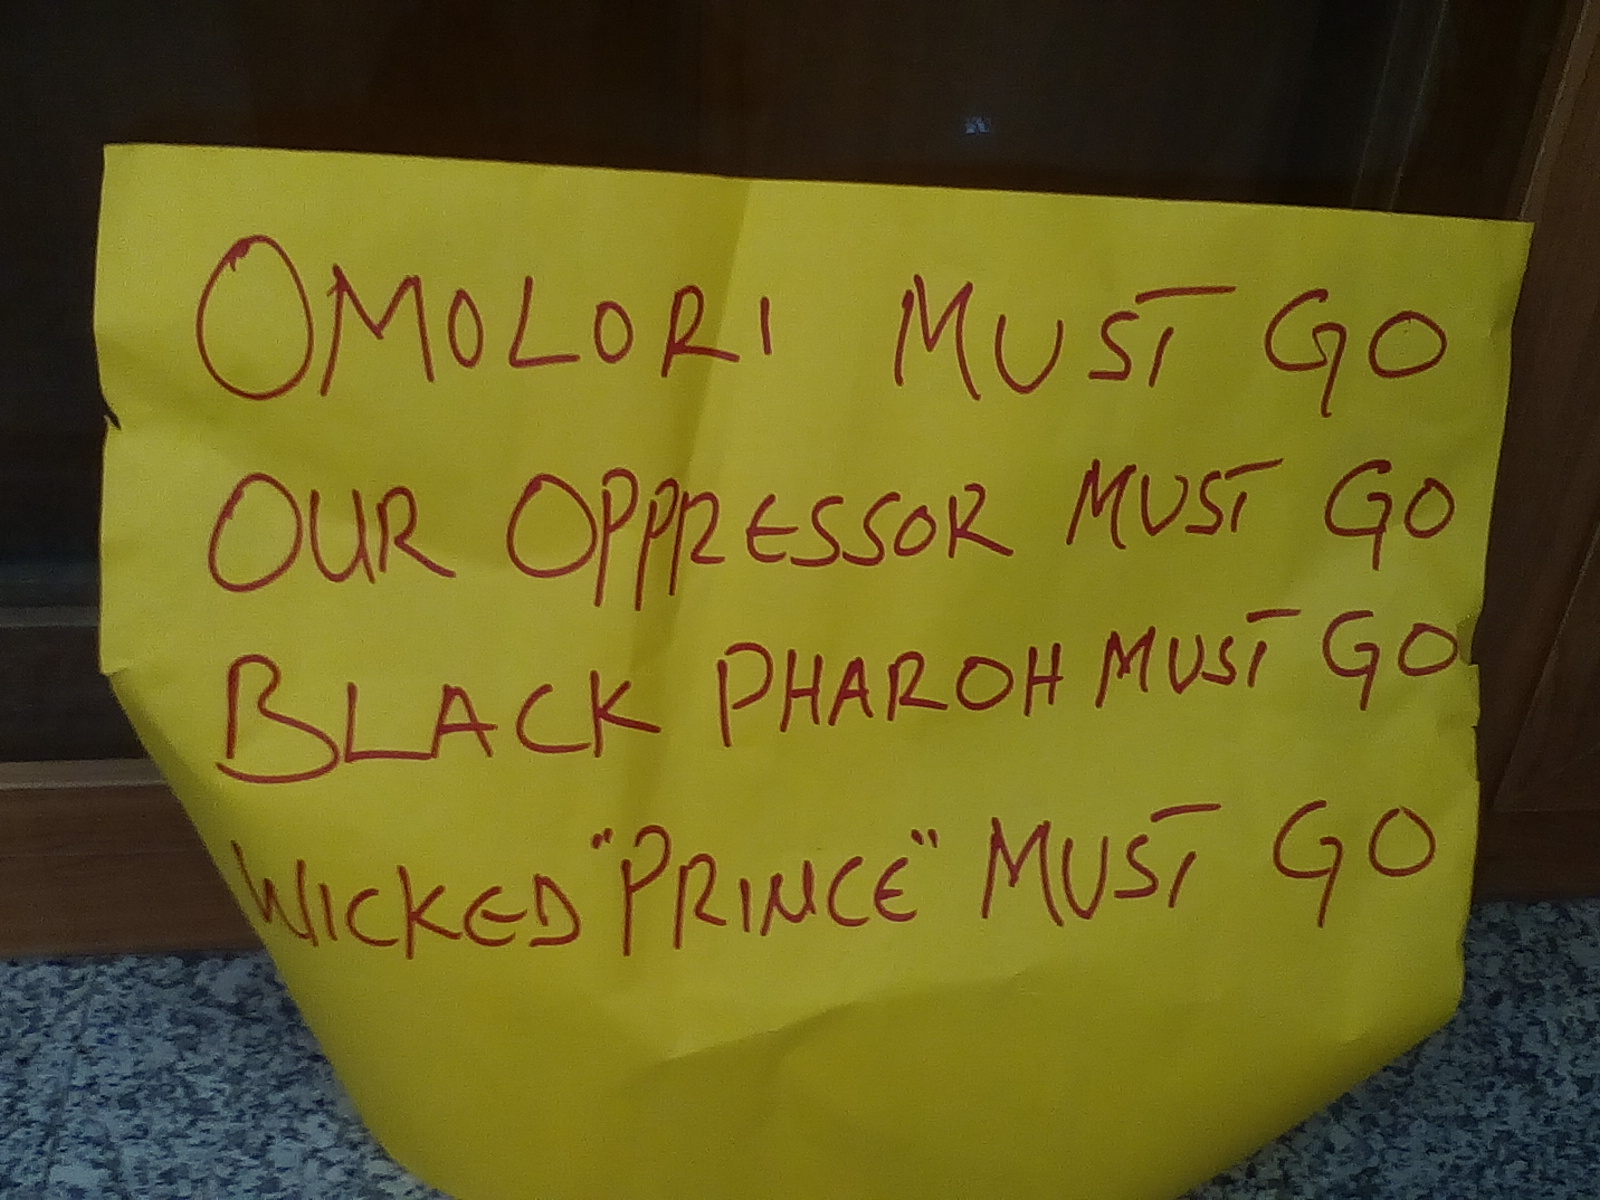 OMOLORI MUST GO
OUR OPPRESSOR MUST GO
BLACK PHAROH MUST GO
WICKED "PRINCE" MUST GO